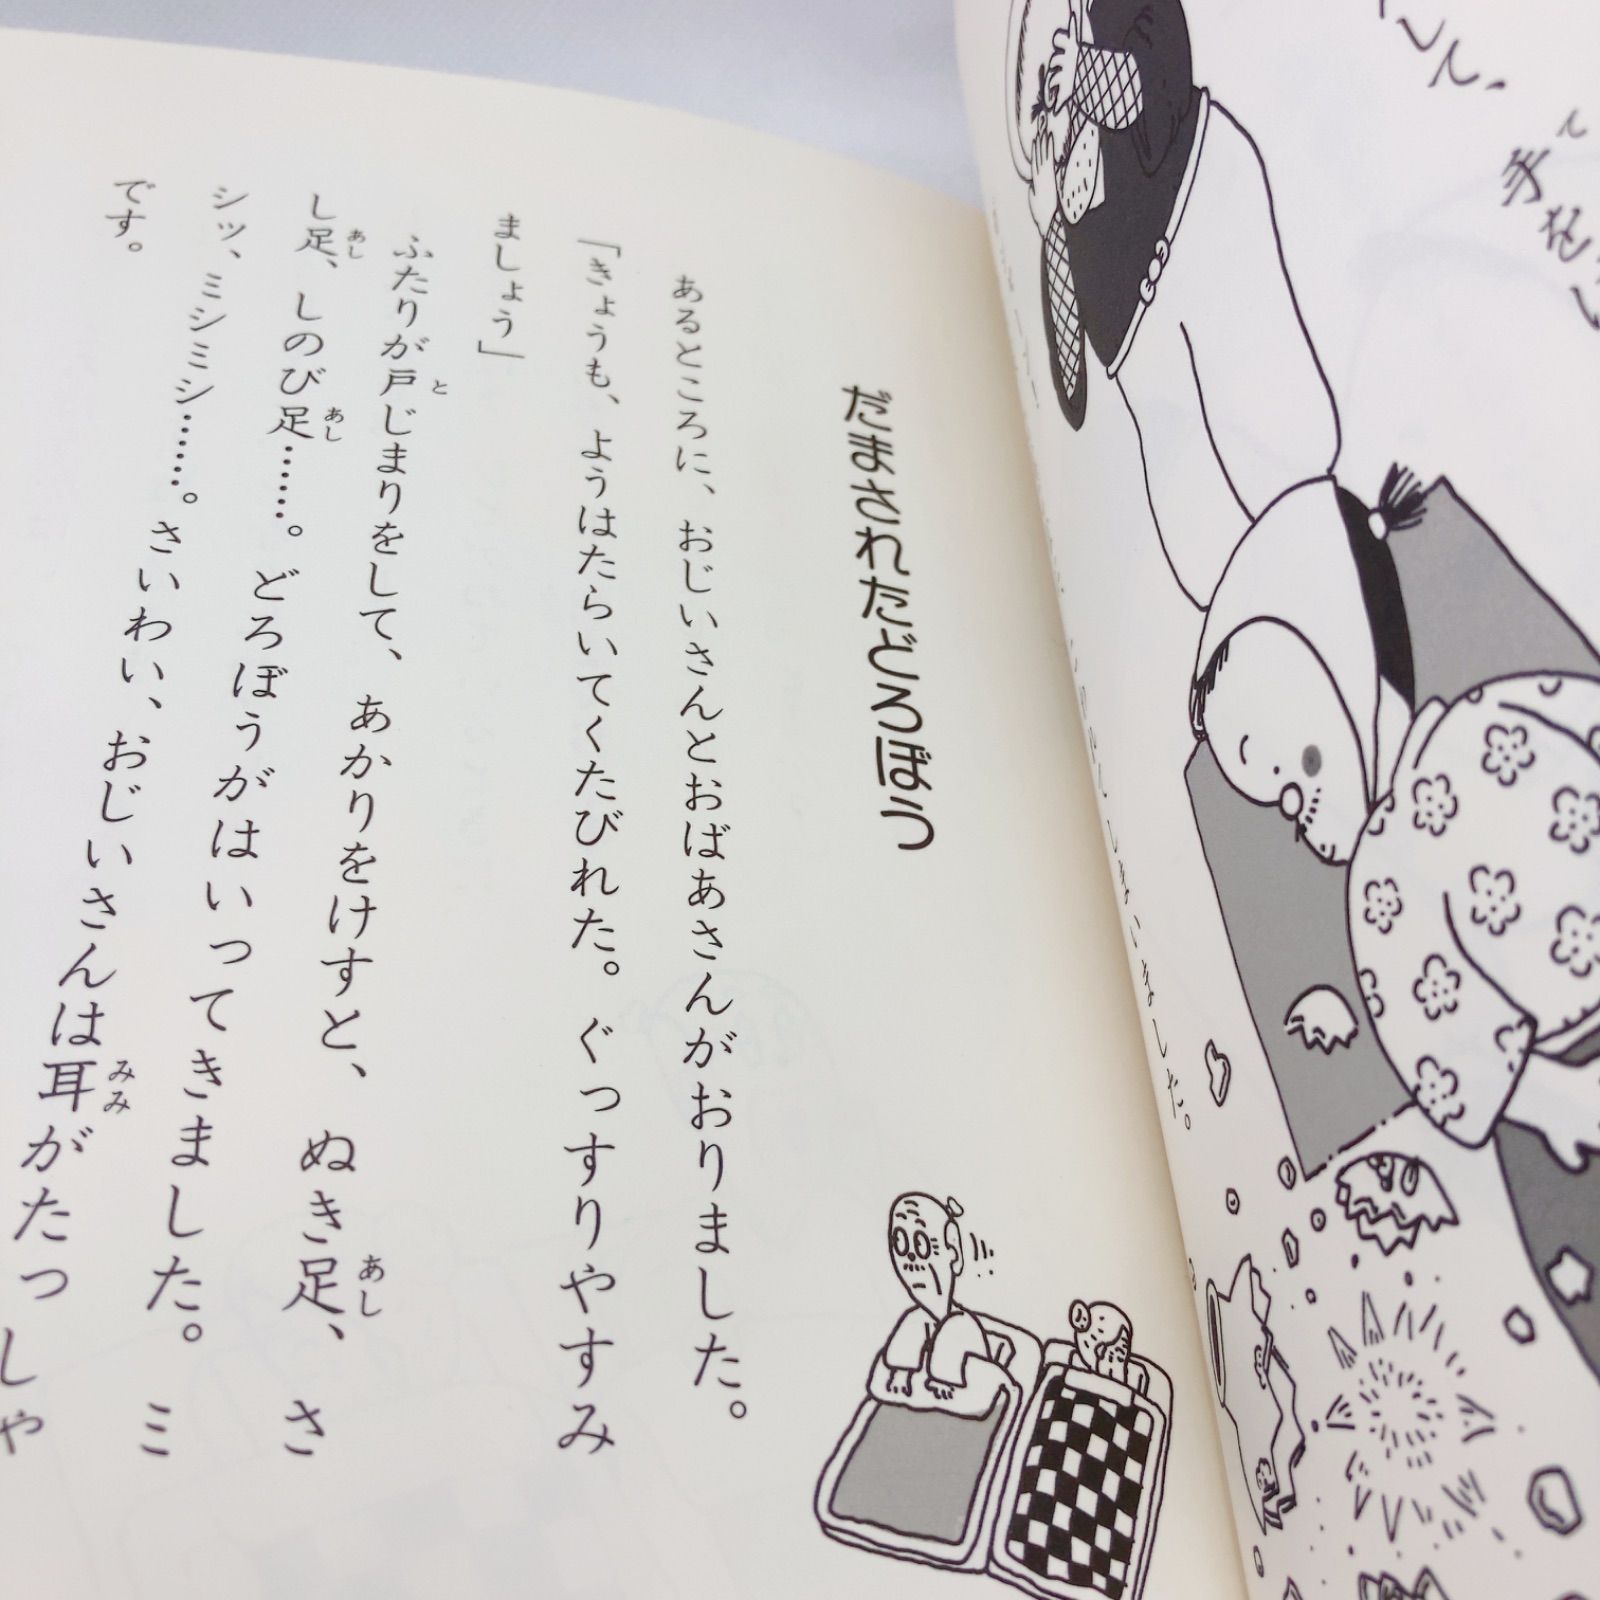 手を
して、
しまいました。
だまされたどろぼう
あるところに、おじいさんとおばあさんがおりました。
「きょうも、ようはたらいてくたびれた。ぐっすりやすみ
ましょう」
ふたりが戸じまりをして、あかりをけすと、ぬき足、さ
し足、しのび足……。どろぼうがはいってきました。ミ
シッ、ミシミシ……。さいわい、おじいさんは耳がたっしゃ
です。